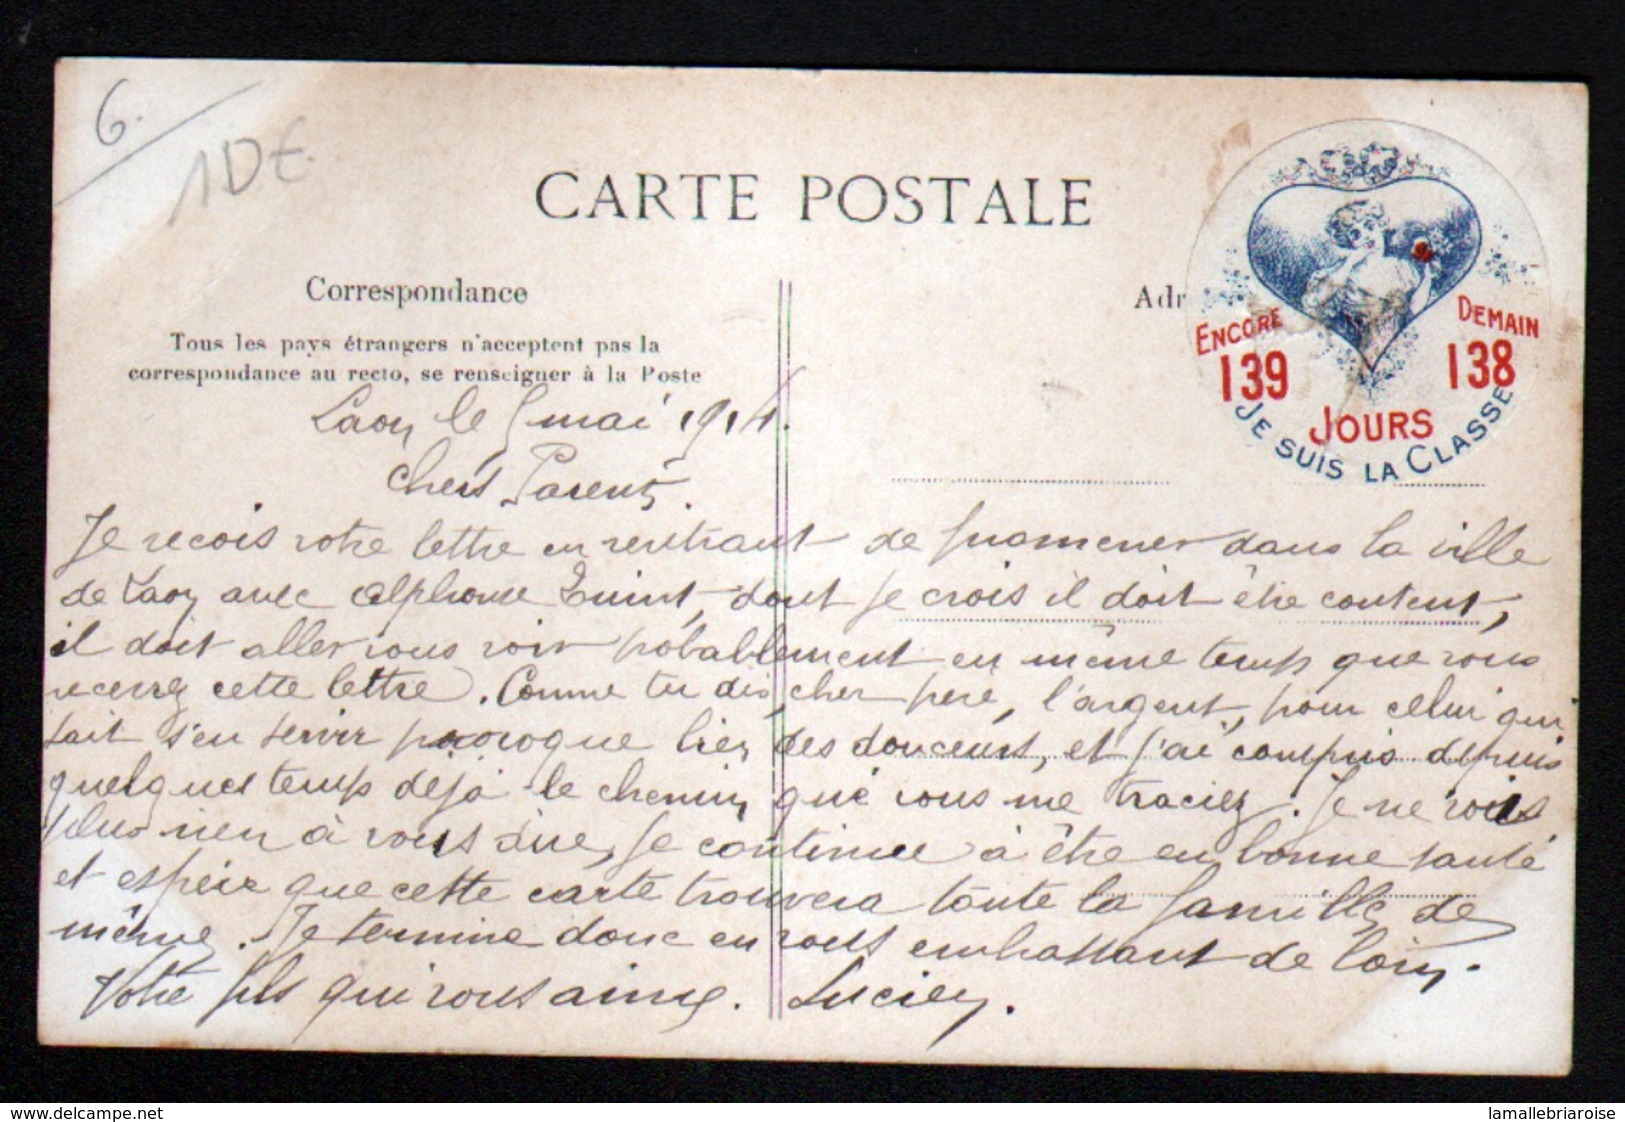 6.
10€.
CARTE POSTALE
Correspondance
Tous les pays étrangers n'acceptent pas la
correspondance au recto, se renseigner à la Poste
Adr
ENCORE
139
DEMAIN
138
JOURS
JE SUIS LA CLASSE
Laon le 5 mai 1914.
Chers Parents.
Je recois votre lettre en rentrant de promener dans la ville
de Laon avec Alphonse dont je crois il doit être content,
il doit aller vous voir probablement en même temps que vous
recevrez cette lettre. Comme tu dis, cher père, l'argent, pour celui qui
sait s'en servir procure bien des douceurs, et j'ai compris depuis
quelques temps déjà le chemin que vous me traciez. Je ne vois
plus rien à vous dire, je continue à être en bonne santé
et espère que cette carte trouvera toute la famille de
même. Je termine donc en vous embrassant de loin.
Votre fils qui vous aime. Lucien.
delcampe.net
lamallebriaroise